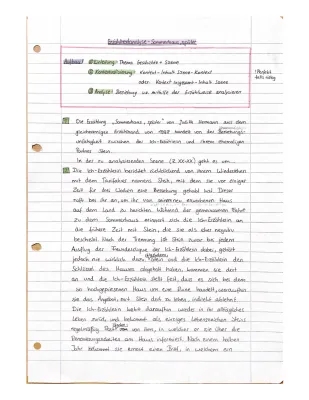 Erzähltextanalyse - Sommerhaus, später
Aufbau: ① Einleitung: Thema Geschichte + Szene
② Kontextualisierung: Kontext - Inhalt Szene - Kontext
oder Kontext insgesamt - Inhalt Szene
③ Analyse: Beziehung von anhand der Erzählweise analysieren
falls nötig
1 Die Erzählung "Sommerhaus, später" von Judith Hermann aus dem
gleichnamigen Erzählband von 1998 handelt von der Beziehungs-
unfähigkeit zwischen der Ich-Erzählerin und ihrem ehemaligen
Partner Stein.
In der zu analysierenden Szene (Z. XX-XX) geht es um...
2 Die Ich-Erzählerin berichtet rückblickend von ihrem Wiedersehen
mit dem Taxifahrer namens Stein, mit dem sie vor einiger
Zeit für drei Wochen eine Beziehung gehabt hat. Dieser
ruft bei ihr an, um ihr von seinem neu erworbenen Haus
auf dem Land zu berichten. Während der gemeinsamen Fahrt
zu dem Sommerhaus erinnert sich die Ich-Erzählerin an
die frühere Zeit mit Stein, die sie als eher negativ
beschreibt. Nach der Trennung ist Stein zwar bei jedem
Ausflug der Freundesclique der Ich-Erzählerin dabei, gehört
jedoch nie wirklich dazu. Stein und die Ich-Erzählerin den
Schlüssel des Hauses abgeholt haben, kommen sie dort
an und die Ich-Erzählerin stellt fest, dass es sich bei dem
so hochgepriesenen Haus um eine Ruine handelt, woraufhin
sie das Angebot, mit Stein dort zu leben, indirekt ablehnt.
Die Ich-Erzählerin kehrt daraufhin wieder in ihr alltägliches
Leben zurück und bekommt als einziges Lebenszeichen Steins
regelmäßig Post von ihm, in welcher er sie über die
Renovierungsarbeiten am Haus informiert. Nach einem halben
Jahr bekommt sie erneut einen Brief, in welchem ein